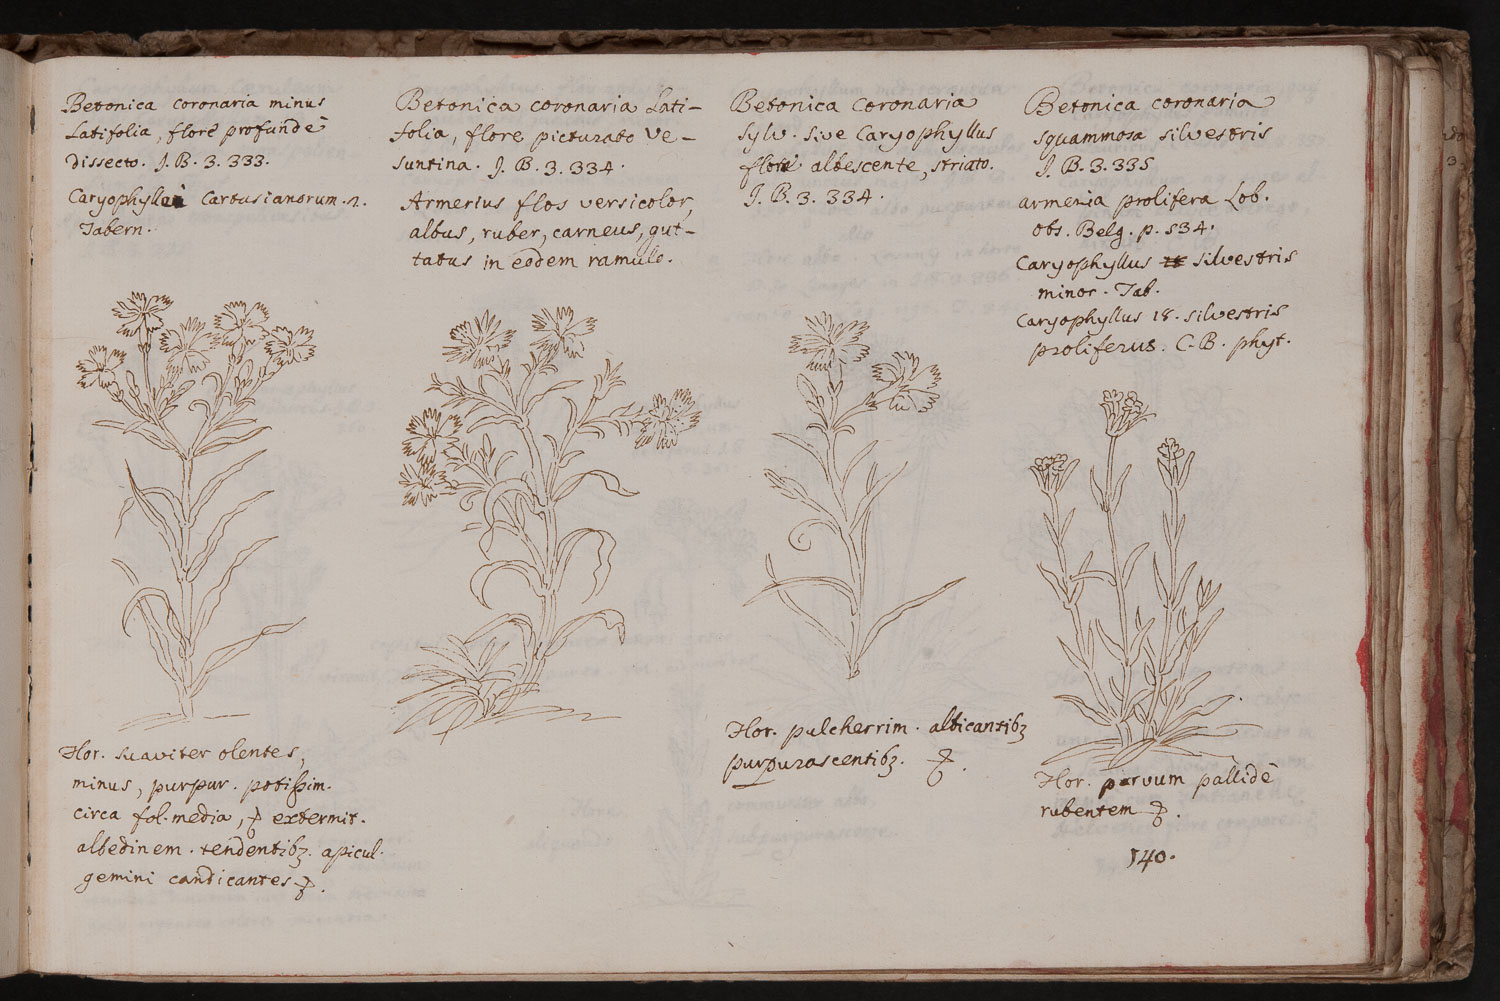 Betonica coronaria minus
Latifolia, flore profundè
dissecto. J. B. 3. 333.
Caryophyl Cartusianorum. 2.
Tabern.
Betonica coronaria Lati-
folia, flore picturato Ve-
suntina. J. B. 3. 334.
Armerius flos versicolor,
albus, ruber, carneus, gut-
tatus in eodem ramulo.
Betonica Coronaria
Sylv. sive Caryophyllus
flore albescente, striato.
J. B. 3. 334.
Betonica coronaria
squammosa silvestris
J. B. 3. 335
armeria prolifera Lob.
obs. Belg. p. 534.
Caryophyllus silvestris
minor. Tab.
Caryophyllus 18. silvestris
proliferus. C. B. phyt.
Flor. suaviter olentes,
minus, purpur. potißim.
circa fol. media, extermit.
albedinem. tendentibʒ. apicul.
gemini candicantes
Flor. pulcherrim. albicantibʒ
purpurascentibʒ.
Flor. parvum pallidè
rubentem
140.